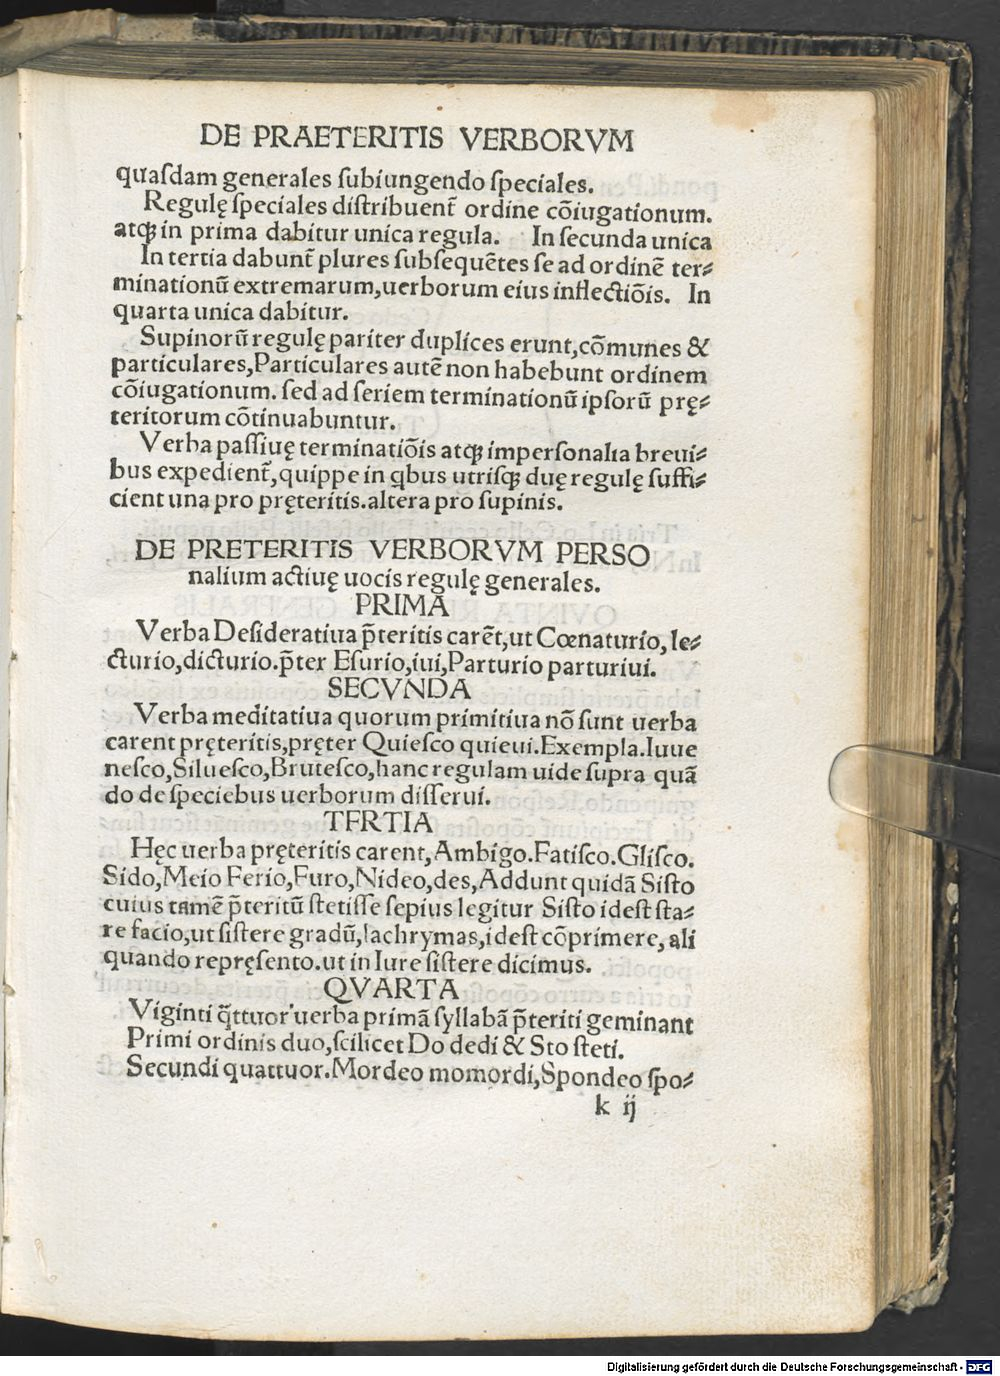 DE PRAETERITIS VERBORVM
quaſdam generales ſubiungendo ſpeciales.
Regulę ſpeciales diſtribuent᷑ ordine cõiugationum.
atqꝫ in prima dabitur unica regula. In ſecunda unica
In tertia dabunt᷑ plures ſubſequẽtes ſe ad ordinẽ ter⸗
minationũ extremarum,uerborum eius inflectiõis. In
quarta unica dabitur.
Supinorũ regulę pariter duplices erunt,cõmunes &
particulares,Particulares autẽ non habebunt ordinem
cõiugationum. ſed ad ſeriem terminationũ ipſorũ prę⸗
teritorum cõtinuabuntur.
Verba paſſiuę terminatiõis atqꝫ imperſonalia breui⸗
bus expedient᷑,quippe in ꝗbus utriſqꝫ duę regulę ſuffi⸗
cient una pro pręteritis.altera pro ſupinis.
DE PRETERITIS VERBORVM PERSO
nalium actiuę uocis regulę generales.
PRIMA
Verba Deſideratiua p̃teritis carẽt,ut Cœnaturio, le⸗
cturio,dicturio.p̃ter Eſurio,iui,Parturio parturiui.
SECVNDA
Verba meditatiua quorum primitiua nõ ſunt uerba
carent pręteritis,pręter Quieſco quieui.Exempla.Iuue
neſco,Silueſco,Bruteſco,hanc regulam uide ſupra quã
do de ſpeciebus uerborum diſſerui.
TERTIA
Hęc uerba pręteritis carent,Ambigo.Fatiſco.Gliſco.
Sido,Meio Ferio,Furo,Nideo,des,Addunt quidã Siſto
cuius tamẽ p̃teritũ ſtetiſſe ſepius legitur Siſto ideſt ſta⸗
re facio,ut ſiſtere gradũ,lachrymas,ideſt cõprimere, ali
quando repręſento.ut in Iure ſiſtere dicimus.
QVARTA
Viginti q̃ttuor uerba primã ſyllabã p̃teriti geminant
Primi ordinis duo,ſcilicet Do dedi & Sto ſteti.
Secundi quattuor.Mordeo momordi,Spondeo ſpo⸗
k ij
Digitalisierung gefördert durch die Deutsche Forschungsgemeinschaft - DFG